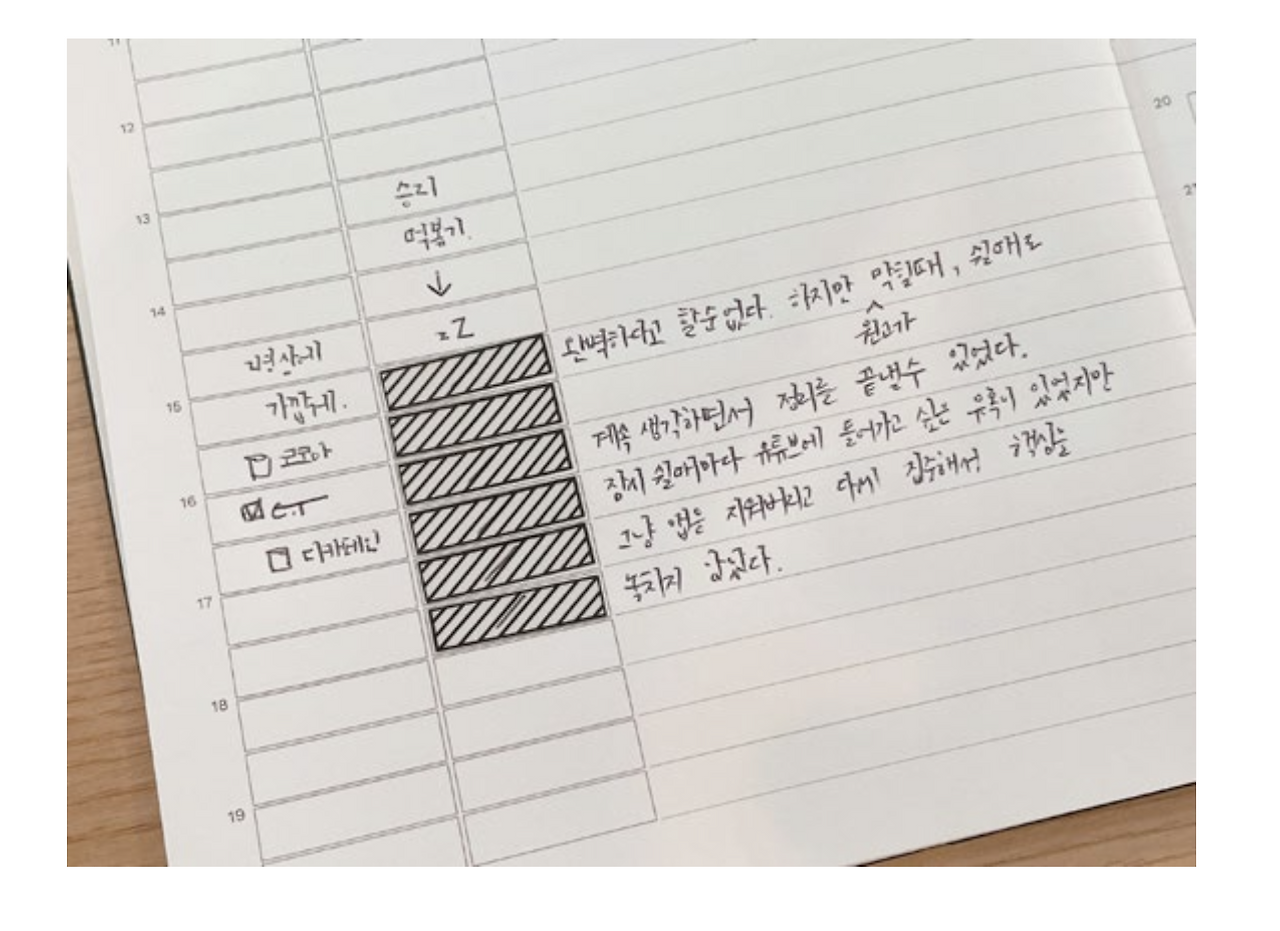 11
12
13
14
15
16
17
18
19
20
21
승리
떡볶기.
↓
zZ
가깝게.
코코아
E.T
디카페인
완벽하다고 할순없다. 하지만 막힐때, 쉴때도
원고가
계속 생각하면서 정리를 끝낼수 있었다.
잠시 쉴때마다 유튜브에 들어가고 싶은 유혹이 있었지만
그냥 앱을 지워버리고 다시 집중해서 책상을
놓치지 않았다.